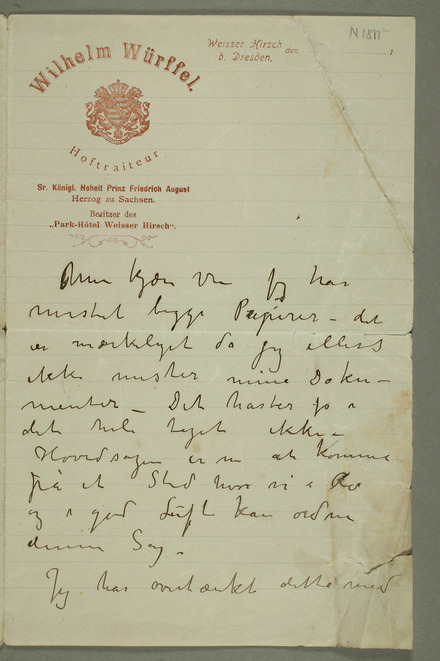 N 1881
Weisser Hirsch
b. Dresden,
den 1
Wilhelm Würffel.
Hoftraiteur
Sr. Königl. Hoheit Prinz Friedrich August
Herzog zu Sachsen.
Besitzer des
„Park-Hôtel Weisser Hirsch“.
Min kjære Ven Jeg har
mistet begge Papirer – det
er mærkeligt da jeg ellers
ikke mister mine Doku-
menter – Det haster jo i
det hele taget ikke –
Hovedsagen er nu at komme
på et Sted hvor vi i Ro
og i god Luft kan ordne
denne Sag.
Jeg har overtænkt dette med